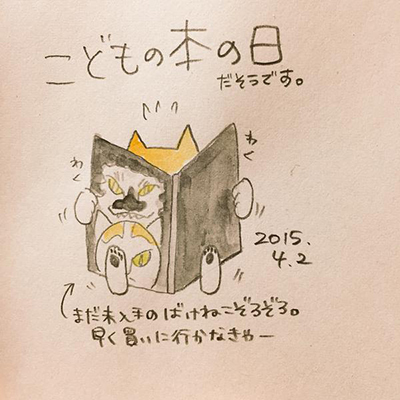 こどもの本の日
だそうです。
わく
わく
2015.
4.2
まだ未入手のばけねこぞろぞろ。
早く買いに行かなきゃー